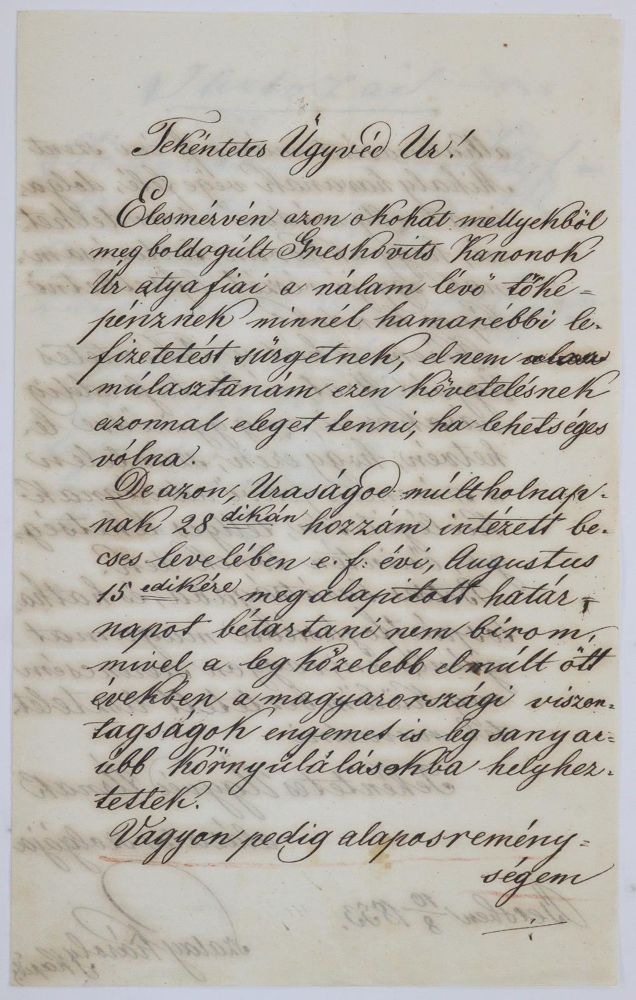 Tekéntetes Ügyvéd Ur!
Elesmérvén azon okokat mellyekböl
megboldogúlt Greskovits Kanonok
Ur atyafiai a nálam lévö tőke-
pénznek minnél hamarébbi le-
fizetetést sürgetnek, el nem
múlasztanám ezen követelésnek
azonnal eleget tenni, ha lehetséges
vólna.
De azon, Uraságod múlt holnap-
nak 28dikán hozzám intézett be-
cses levelében e. f. évi, Augustus
15edikére megalapított határ-
napot bétartani nem birom,
mivel a leg közelebb elmúlt ött
években a magyarországi viszon-
tagságok engemet is leg sanyar-
úbb környulálásokba helyhez-
tettek.
Vagyon pedig alapos remény-
ségem